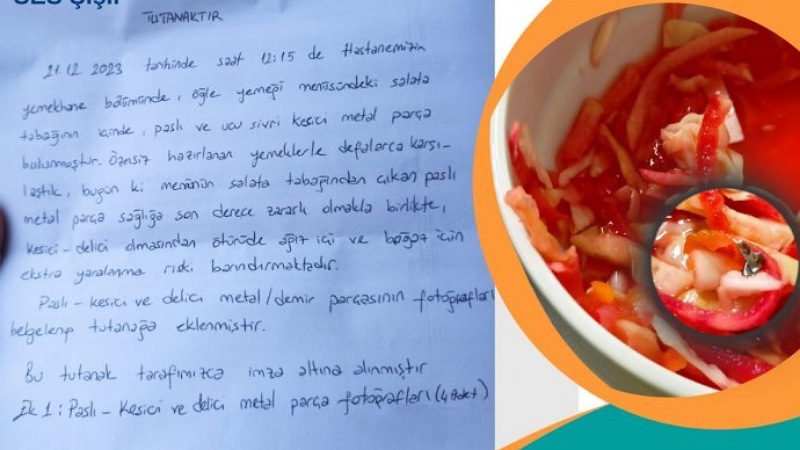 SES ŞİŞLİ
TUTANAKTIR
21.12.2023 tarihinde saat 12:15 de Hastanemizin
yemekhane bölümünde, öğle yemeği menüsündeki salata
tabağının içinde, paslı ve ucu sivri kesici metal parça
bulunmuştur. Özensiz hazırlanan yemeklerle defalarca karşı-
laştık, bugün ki menünün salata tabağından çıkan paslı
metal parça sağlığa son derece zararlı olmakla birlikte,
kesici-delici olmasından ötürüde ağız içi ve boğaz için
ekstra yaralanma riski barındırmaktadır.
Paslı-kesici ve delici metal/demir parçasının fotoğrafları
belgelenip tutanağa eklenmiştir.
Bu tutanak tarafımızca imza altına alınmıştır
Ek 1: Paslı-Kesici ve delici metal parça fotoğrafları (4 Adet)